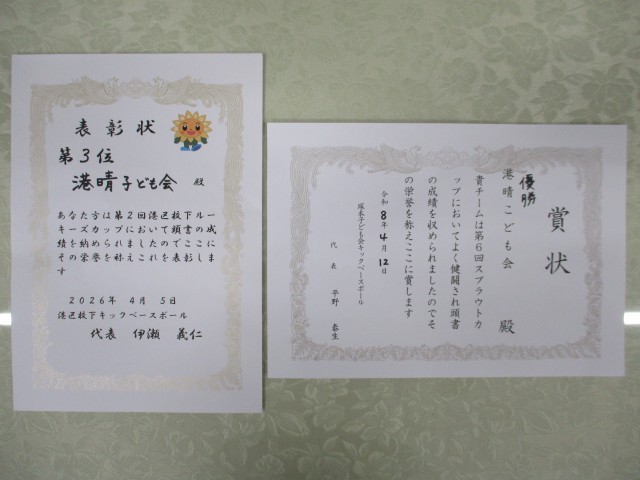 表彰状
第3位
港晴子ども会 殿
あなた方は第2回港区投下ルー
キーズカップにおいて頭書の成
績を納められましたのでここに
その栄誉をたたえこれを表彰しま
す
2026年 4月 5日
港区投下キックベースボール
代表 伊瀬 義仁
賞状
優勝
港晴こども会 殿
貴チームは第6回スプラウトカ
ップにおいてよく健闘され頭書
の成績を収められましたのでそ
の栄誉を称えここに賞します
令和8年4月12日
子ども会キックベースボール
代表 平野 泰生